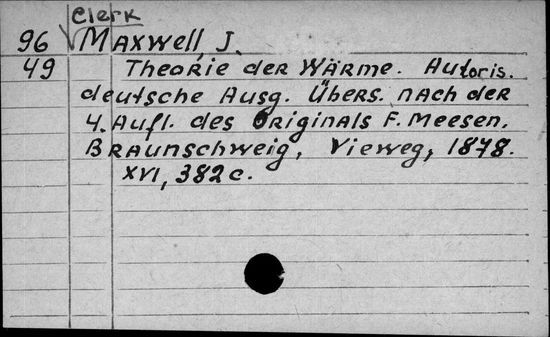 Clerk
96 Maxwell, J.
49 Theorie der Wärme. Autoris.
deutsche Ausg. Übers. nach der
4. Aufl. des Originals F. Meesen.
Braunschweig, Vieweg, 1878.
XVI, 382 c.